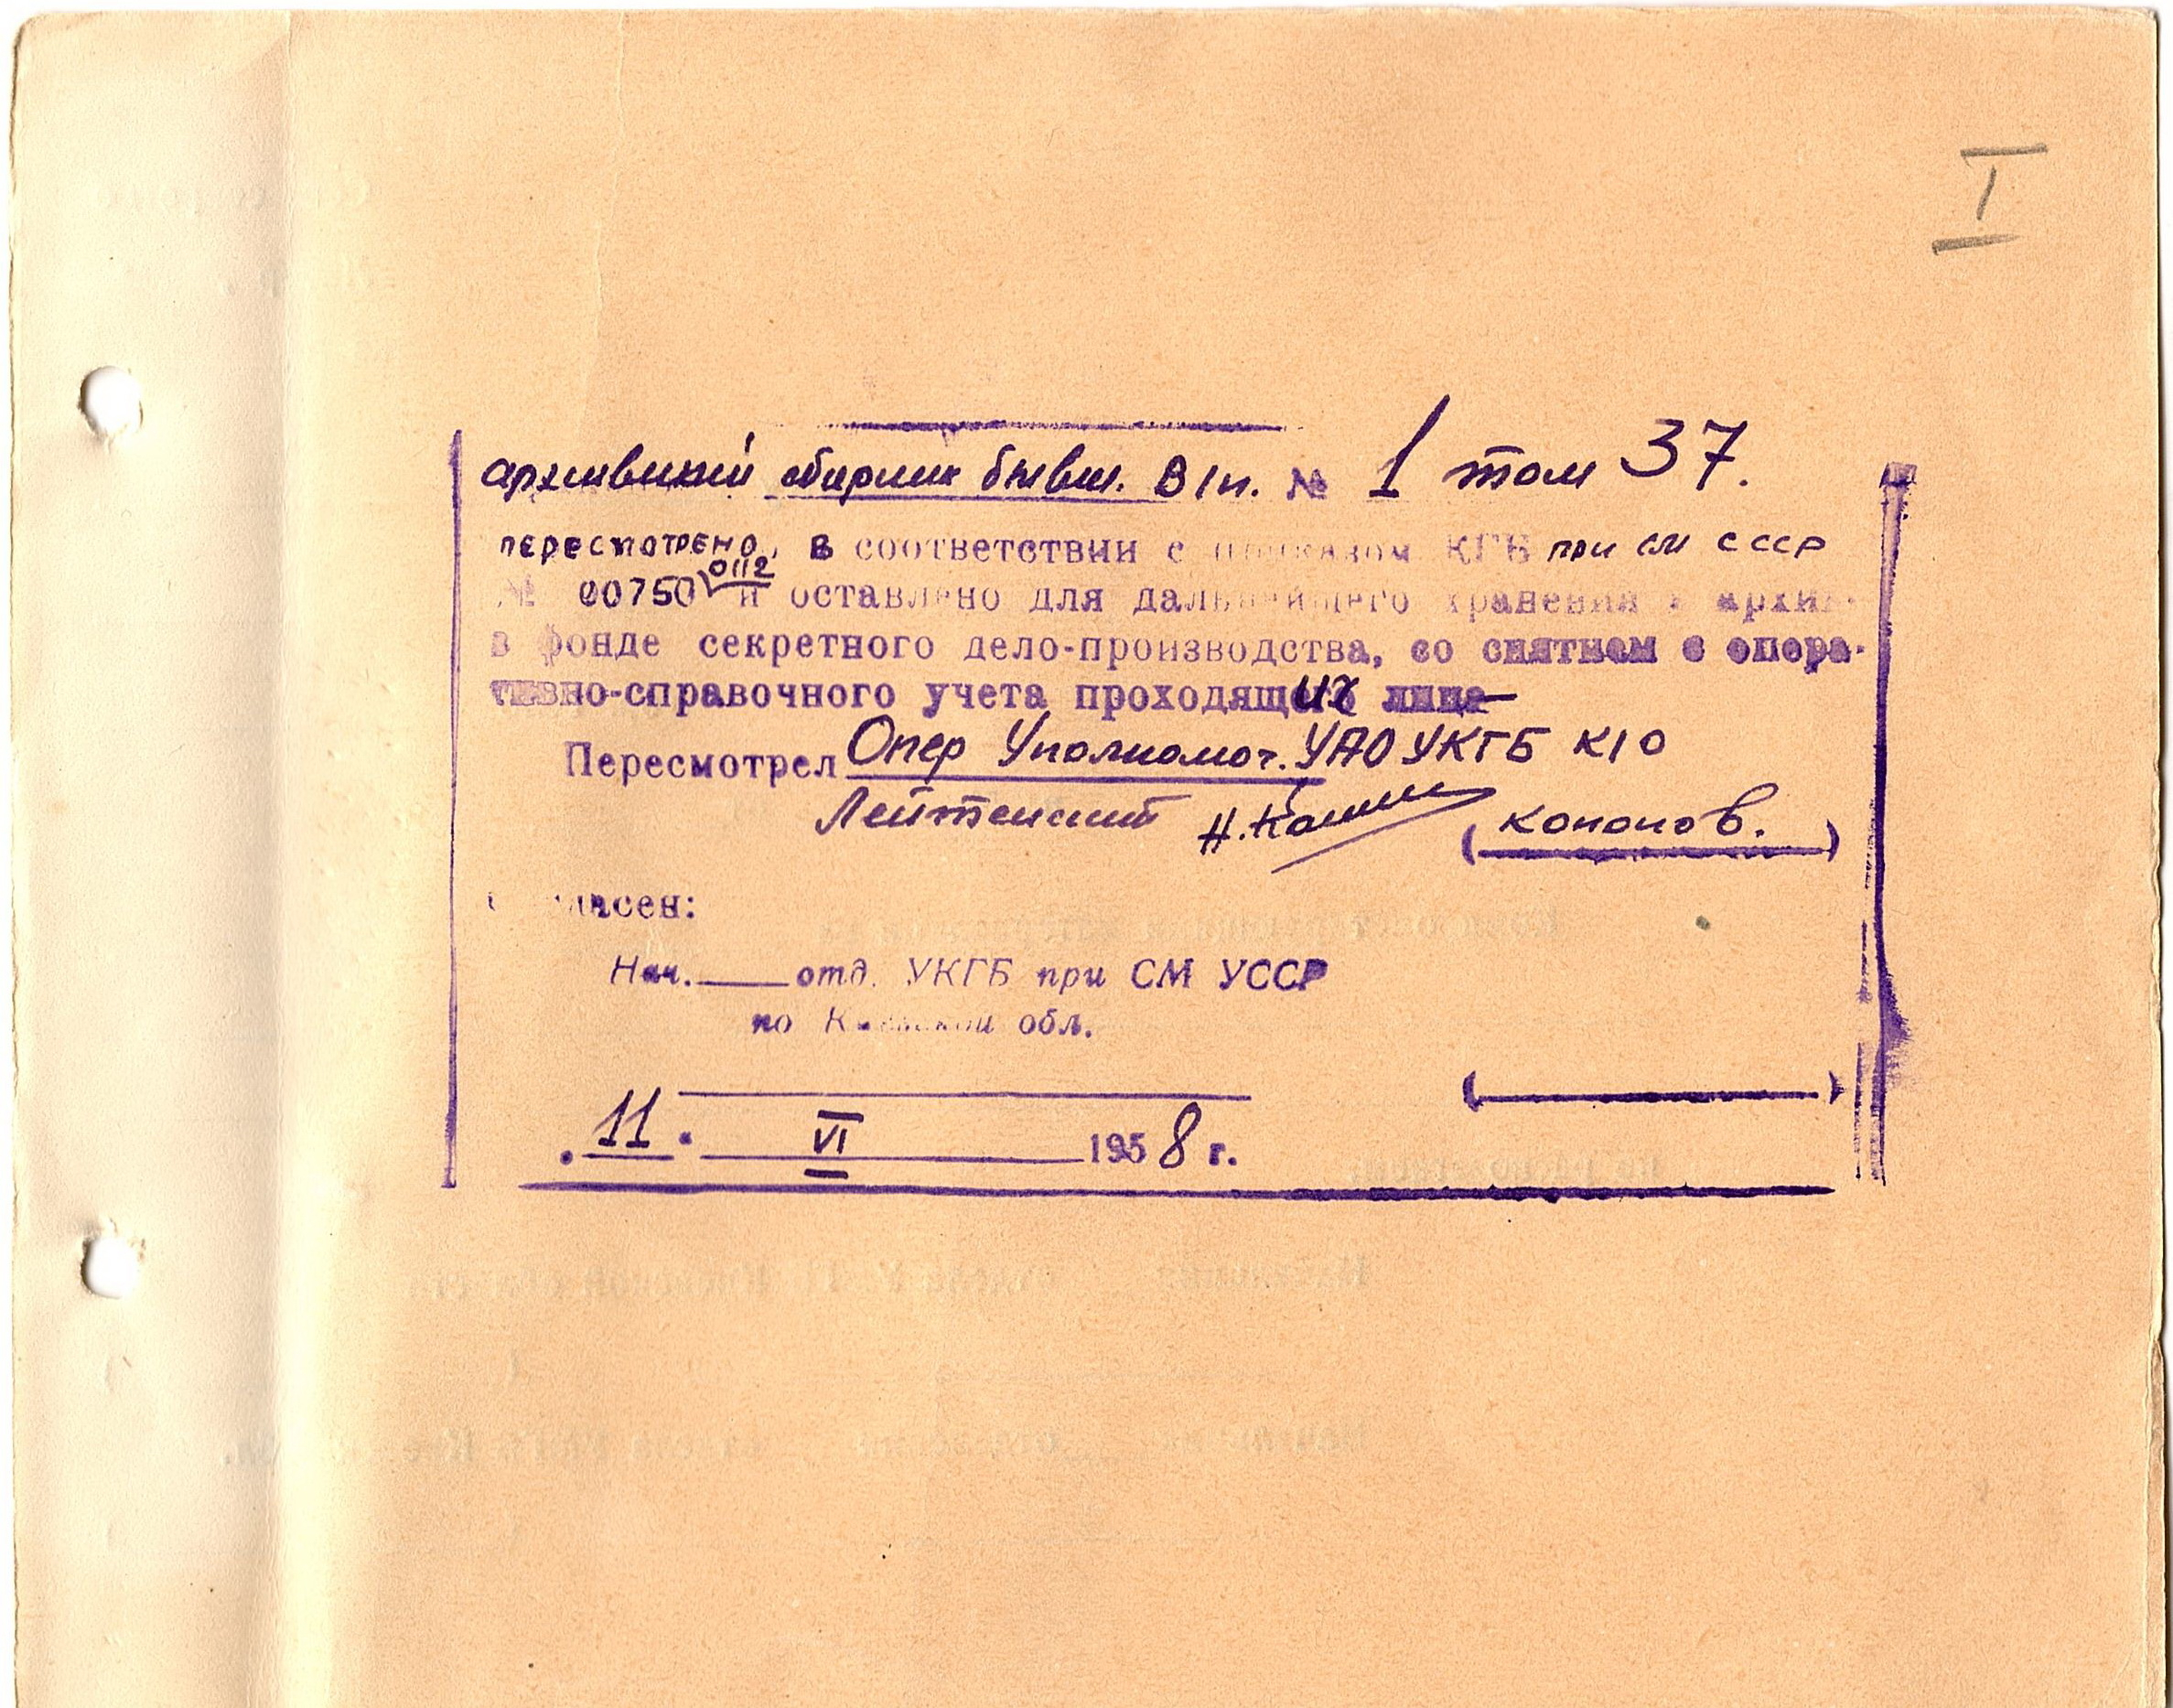 I
архивный сборник бывш. В/п. № 1 том 37.
пересмотрено, в соответствии с приказом КГБ при см СССР
№ 00750 0112 и оставлено для дальнейшего хранения в архив
в фонде секретного дело-производства, со снятием с опера-
тивно-справочного учета проходящих лиц
Пересмотрел Опер Уполномоч. УАО УКГБ К/О
Лейтенант (Кононов.)
Согласен:
Нач. отд. УКГБ при СМ УССР
по Киевской обл.
11. VI 1958 г.